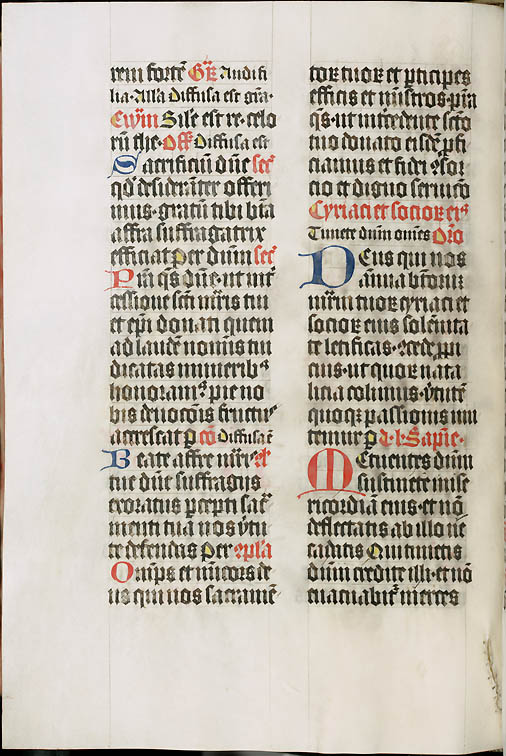 rem fortē Gr̄ Audi fi
lia · Alla Diffusa est grā ·
Ewm̄ Sił'e est re · celo
rū the · Off Diffusa est
Sacrificiū dn̄e sec̄
qd̄ desideranter offeri
mus · gratum tibi btā̄
affra suffragatrix
efficiat per dn̄m sec̄
Pm̄ qs̄ dn̄e · ut int̄
cessione scti mr̄is tui
et ep̄i donati quem
ad laudē nominis tui
dicatis muneribꝫ
honoramꝰ · pie no
bis deuoc̄ōis fructuꝰ
accrescat p cō Diffusa ē
Beate affre mr̄is el
tue dn̄e suffragiis
exoratus p̄cepti sac̄
menti tui nos v̄tu
te defendas Per cp̄la
Om̄ps et mic̄ors de
us qui nos sacramē
toꝝ tuoꝝ et pticipes
efficis et mīstros · pm̄
qs̄ · ut int̄cedente scto
tuo donato eiusdē pfi
ciamus et fidei ꝯsor
cio et digno seruicio
Cyriaci et socioꝝ eiꝰ
Timete dn̄m om̄es Orō
Deus qui nos
ānua bt̄orum
mr̄m tuoꝝ cyriaci et
socioꝝ eius solēnita
te letificas · ꝯcede ppi
cius · ut quoꝝ nata
licia colimus · v̄tutē
quoqꝫ passionis imi
temur p d · l · Sapīe ·
Metuentes dn̄m
sustinete mise
ricordiā eius · et nō
deflectatis ab illo ne
cadatis Qui timetis
dn̄m credite illi · et nō
euacuabit̄ merces